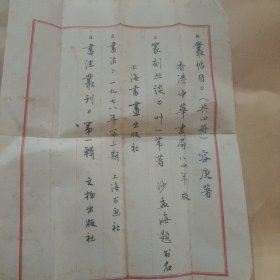 《丛帖目》（共四册）容庚著
香港中華書局八四年版
《篆刻丛谈》叶一苇著 沙孟海题书名
上海書畫出版社
《書法》一九七八年第三期 上海书画社
《書法叢刊》第一輯 文物出版社